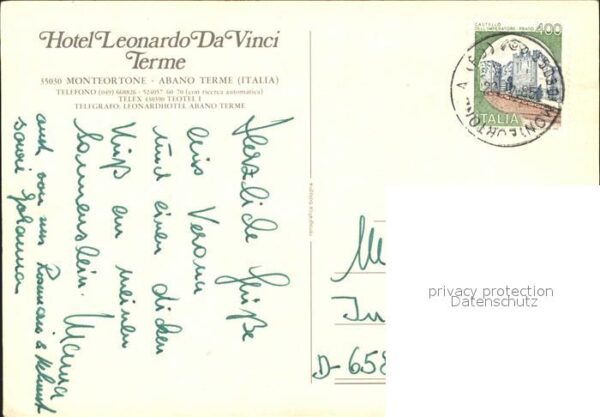 Hotel Leonardo Da Vinci
Terme
35030 MONTEORTONE - ABANO TERME (ITALIA)
TELEFONO (049) 668826 - 524057 60 70 (con ricerca automatica)
TELEX 430390 TEOTEL I
TELEGRAFO: LEONARDHOTEL ABANO TERME
CASTELLO
DELL'IMPERATORE - PRATO
400
ITALIA
MONTEORTONE
Herzliche Grüße
aus Verona
und einen dicken
Kuß an meinen
Sonnenstein. Mama
auch von uns
sowie Johanna
D-658
privacy protection
Datenschutz